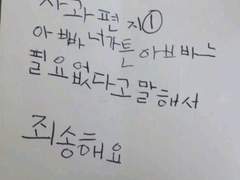 사과편지①
아빠 너같은 아빠는
필요없다고 말해서
죄송해요